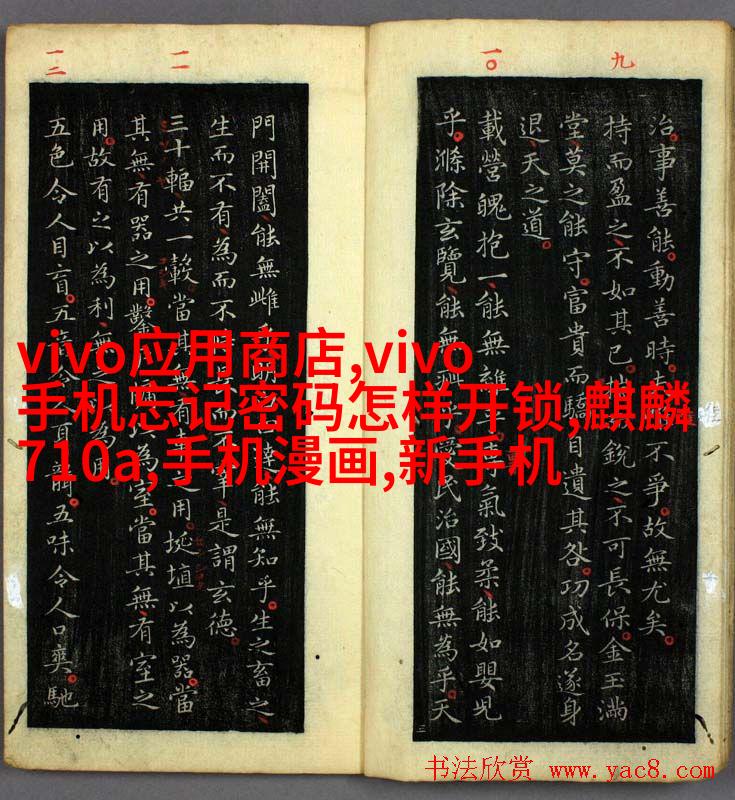 九
一〇
治事善能動善時不爭故無尤矣
持而盈之不如其已銳之不可長保金玉滿
堂莫之能守富貴而驕自遺其咎功成名遂身
退天之道
載營魄抱一能無離氣致柔能如嬰兒
乎滌除玄覽能無疵愛民治國能無為乎天
一一
一二
門開闔能無雌達能無知乎生之畜之
生而不有為而不而不宰是謂玄德
三十輻共一轂當其無有之用埏埴以為器當
其無有器之用鑿牖以為室當其無有室之
用故有之以為利無之以為用
五色令人目盲五音令人耳聾五味令人口爽馳
vivo应用商店,vivo
手机忘记密码怎样开锁,麒麟
710a,手机漫画,新手机
书法欣赏 www.yac8.com